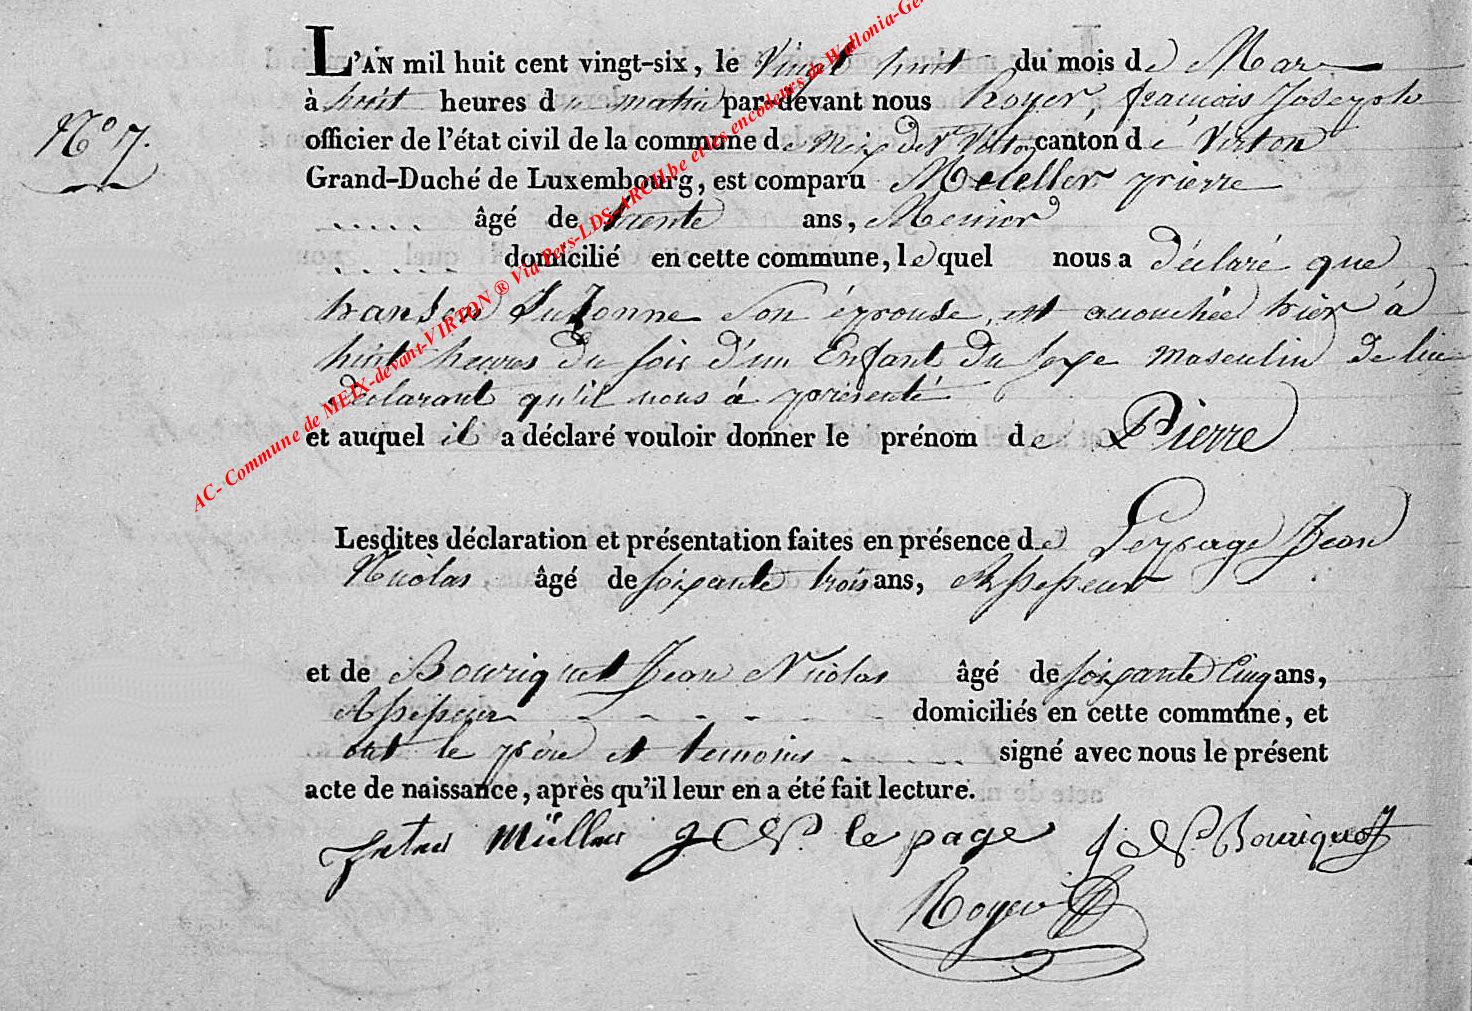 L'AN mil huit cent vingt-six, le Vingt huit du mois de Mars
à huit heures du matin par-devant nous Royer, françois Joseph
N° 7.
officier de l'état civil de la commune de Meix devt Virton canton de Virton
Grand-Duché de Luxembourg, est comparu pierre
..... âgé de trente ans,
...... domicilié en cette commune, lequel nous a déclaré que
Suzonne Son épouse, est accouchée hier à
huit heures du soir d'un Enfant du sexe masculin de lui
déclarant qu'il nous à présenté
et auquel il a déclaré vouloir donner le prénom de Pierre
Lesdites déclaration et présentation faites en présence de Lepage Jean
Nicolas âgé de soixante trois ans, Assesseur
et de Bouriquet Jean Nicolas âgé de soixante Cinq ans,
Assesseur - - - - - - domiciliés en cette commune, et
ont le père et temoins . . . . signé avec nous le présent
acte de naissance, après qu'il leur en a été fait lecture.
Müller J N le page J N Bouriquet
Royer
AC- Commune de MEIX-devant-VIRTON ® Via Pers-LDS-ARCH.be et les encodeurs de Wallonia-Ge